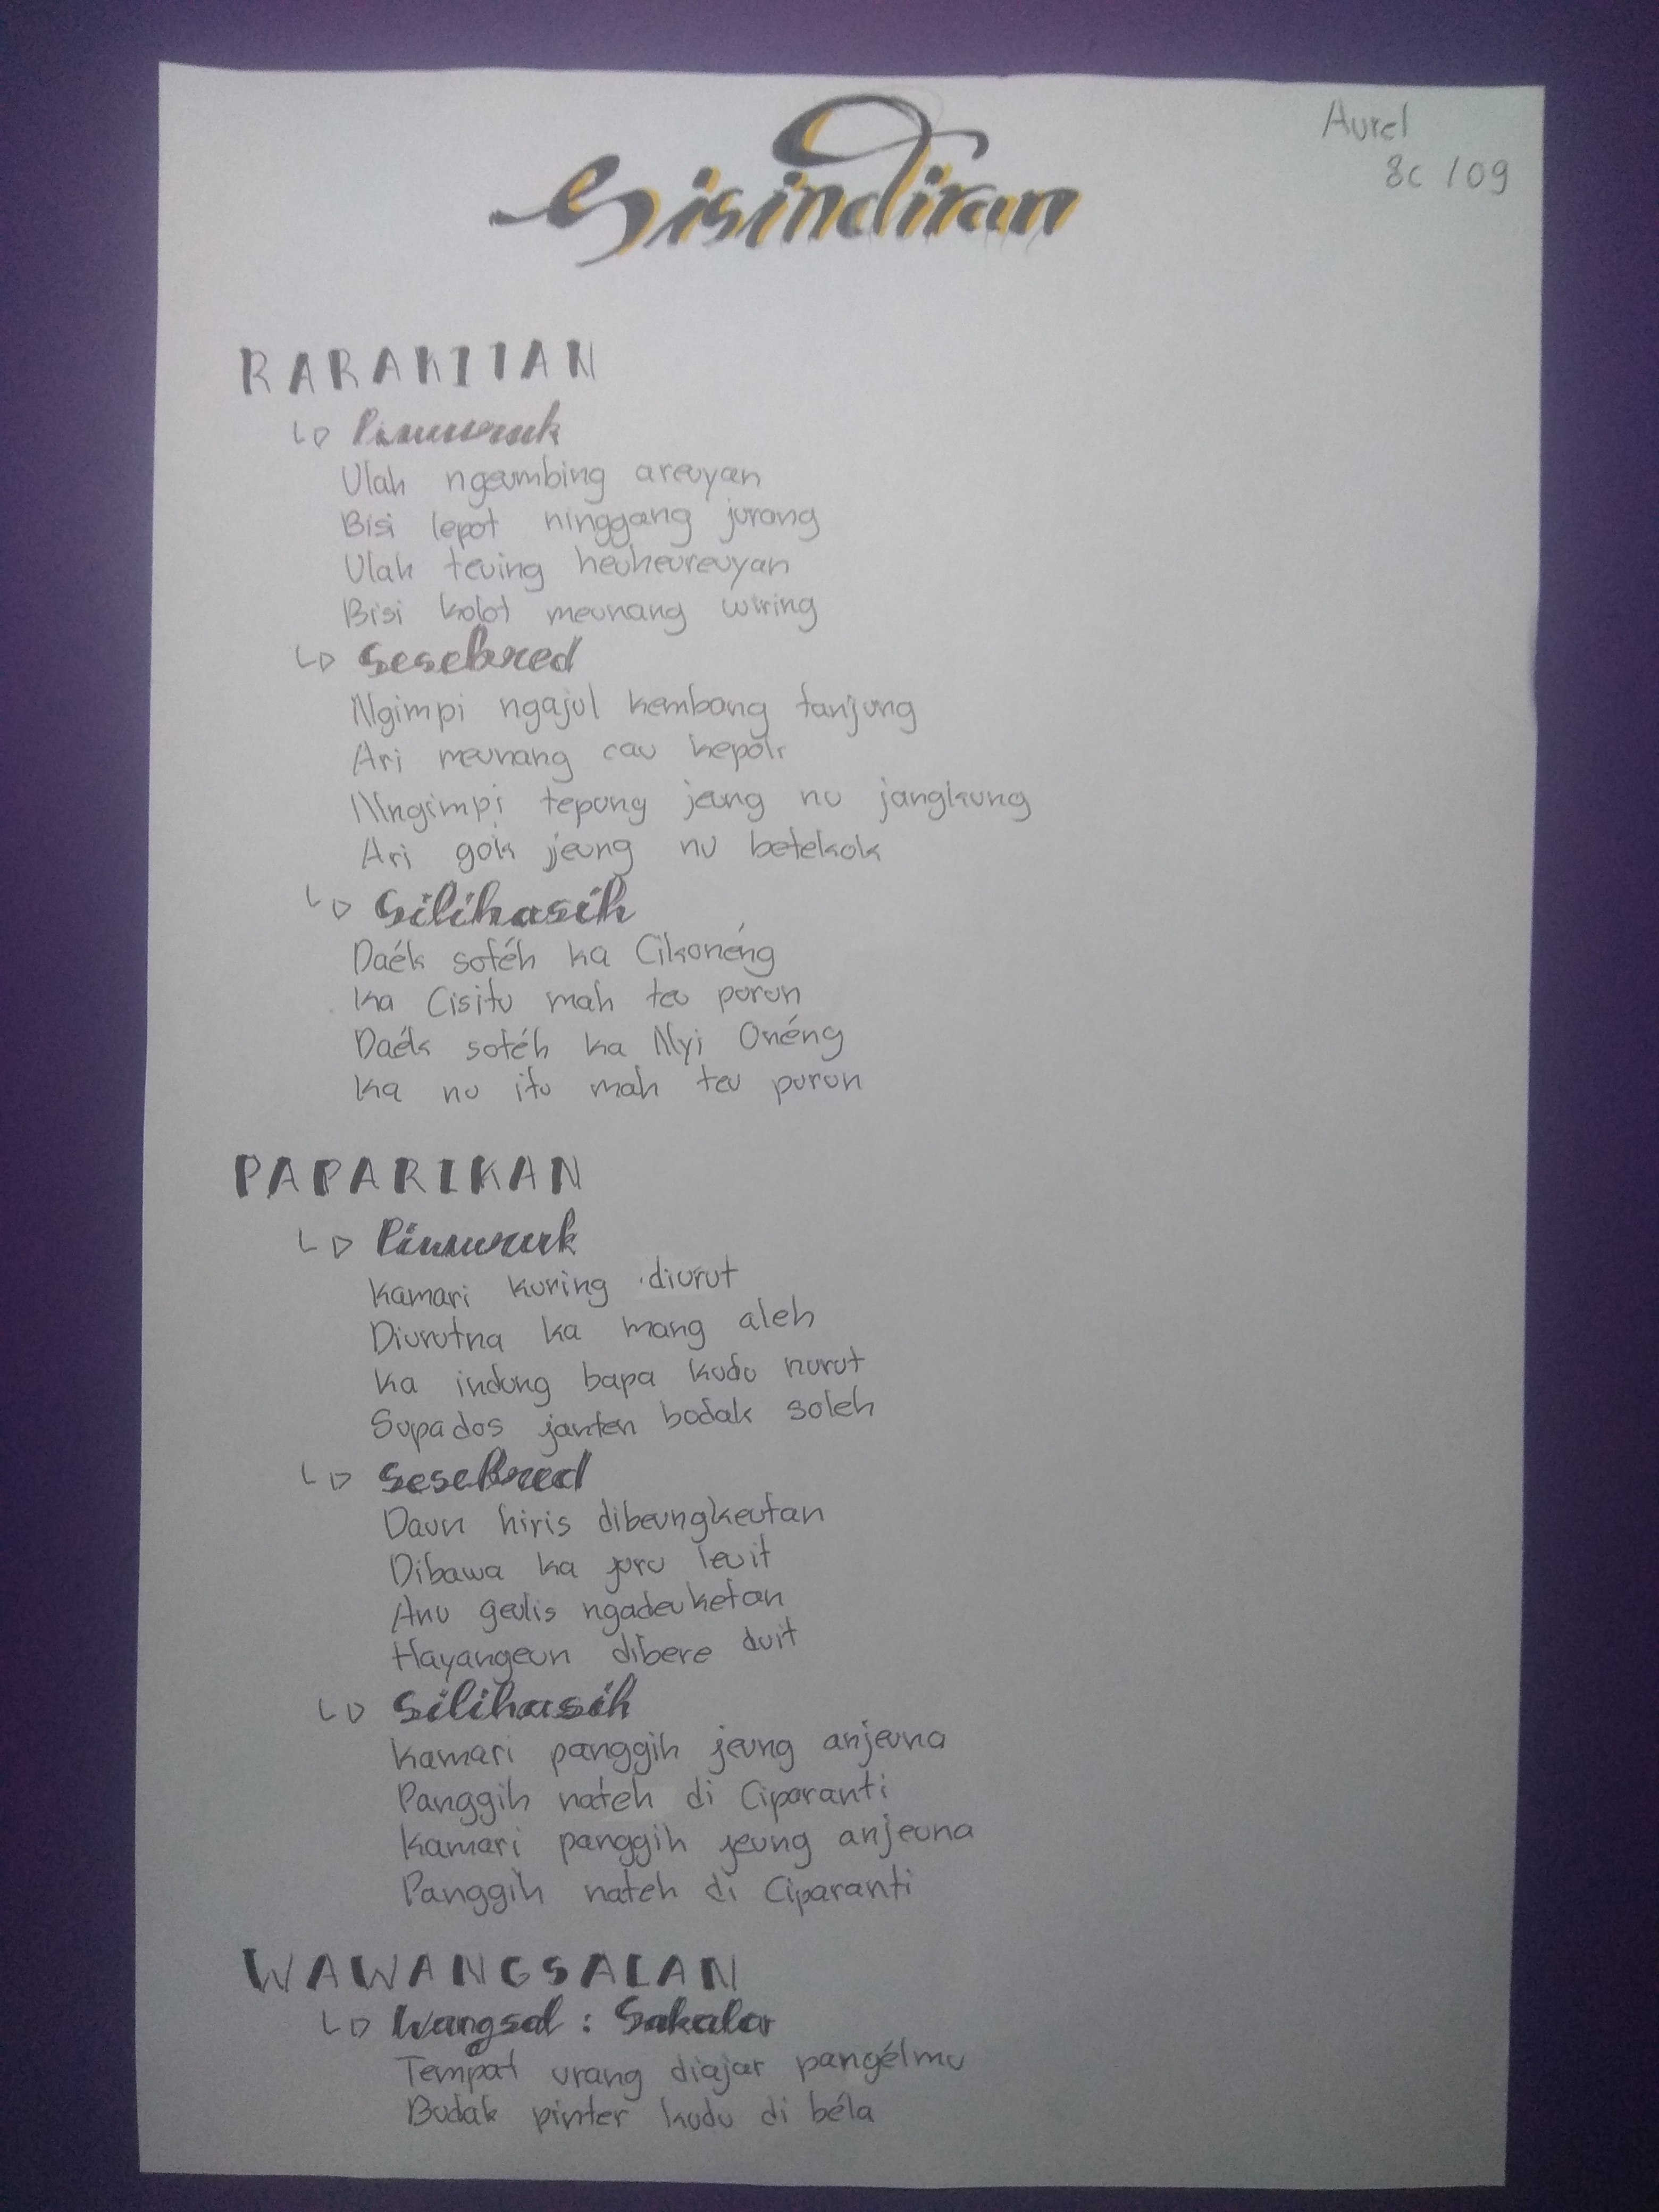 Sisindiran
Aurel
8c / 09
RARAKITAN
Piwuruk
Ulah ngeumbing areuyan
Bisi lepot ninggang jurang
Ulah teuing heuheureuyan
Bisi kolot meunang wiring
Sesebred
Ngimpi ngajul kembang tanjung
Ari meunang cau kepok
Nngimpi tepung jeung nu jangkung
Ari gok jeung nu betekok
Silihasih
Daék sotéh ka Cikonéng
Ka Cisitu mah teu purun
Daék sotéh ka Nyi Onéng
Ka nu itu mah teu purun
PAPARIKAN
Piwuruk
Kamari kuring diurut
Diurutna ka mang aleh
Ka indung bapa kudu nurut
Supados janten budak soleh
Sesebred
Daun hiris dibeungkeutan
Dibawa ka juru leuit
Anu geulis ngadeuketan
Hayangeun dibere duit
Silihasih
Kamari panggih jeung anjeuna
Panggih nateh di Ciparanti
Kamari panggih jeung anjeuna
Panggih nateh di Ciparanti
WAWANGSALAN
Wangsal : Sakala
Tempat urang diajar pangélmu
Budak pinter kudu di béla